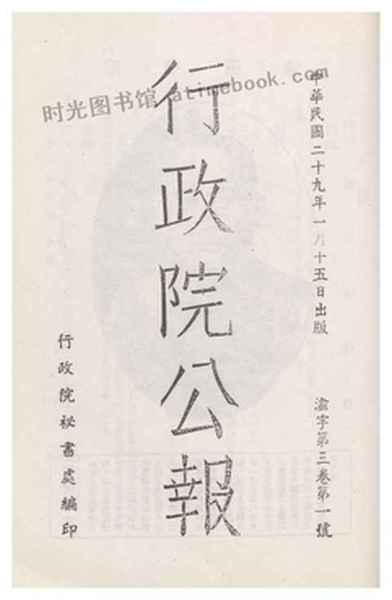 中華民國二十九年一月十五日出版
渝字第三卷第一號
行政院公報
行政院祕書處編印
时光图书馆 atimebook.com